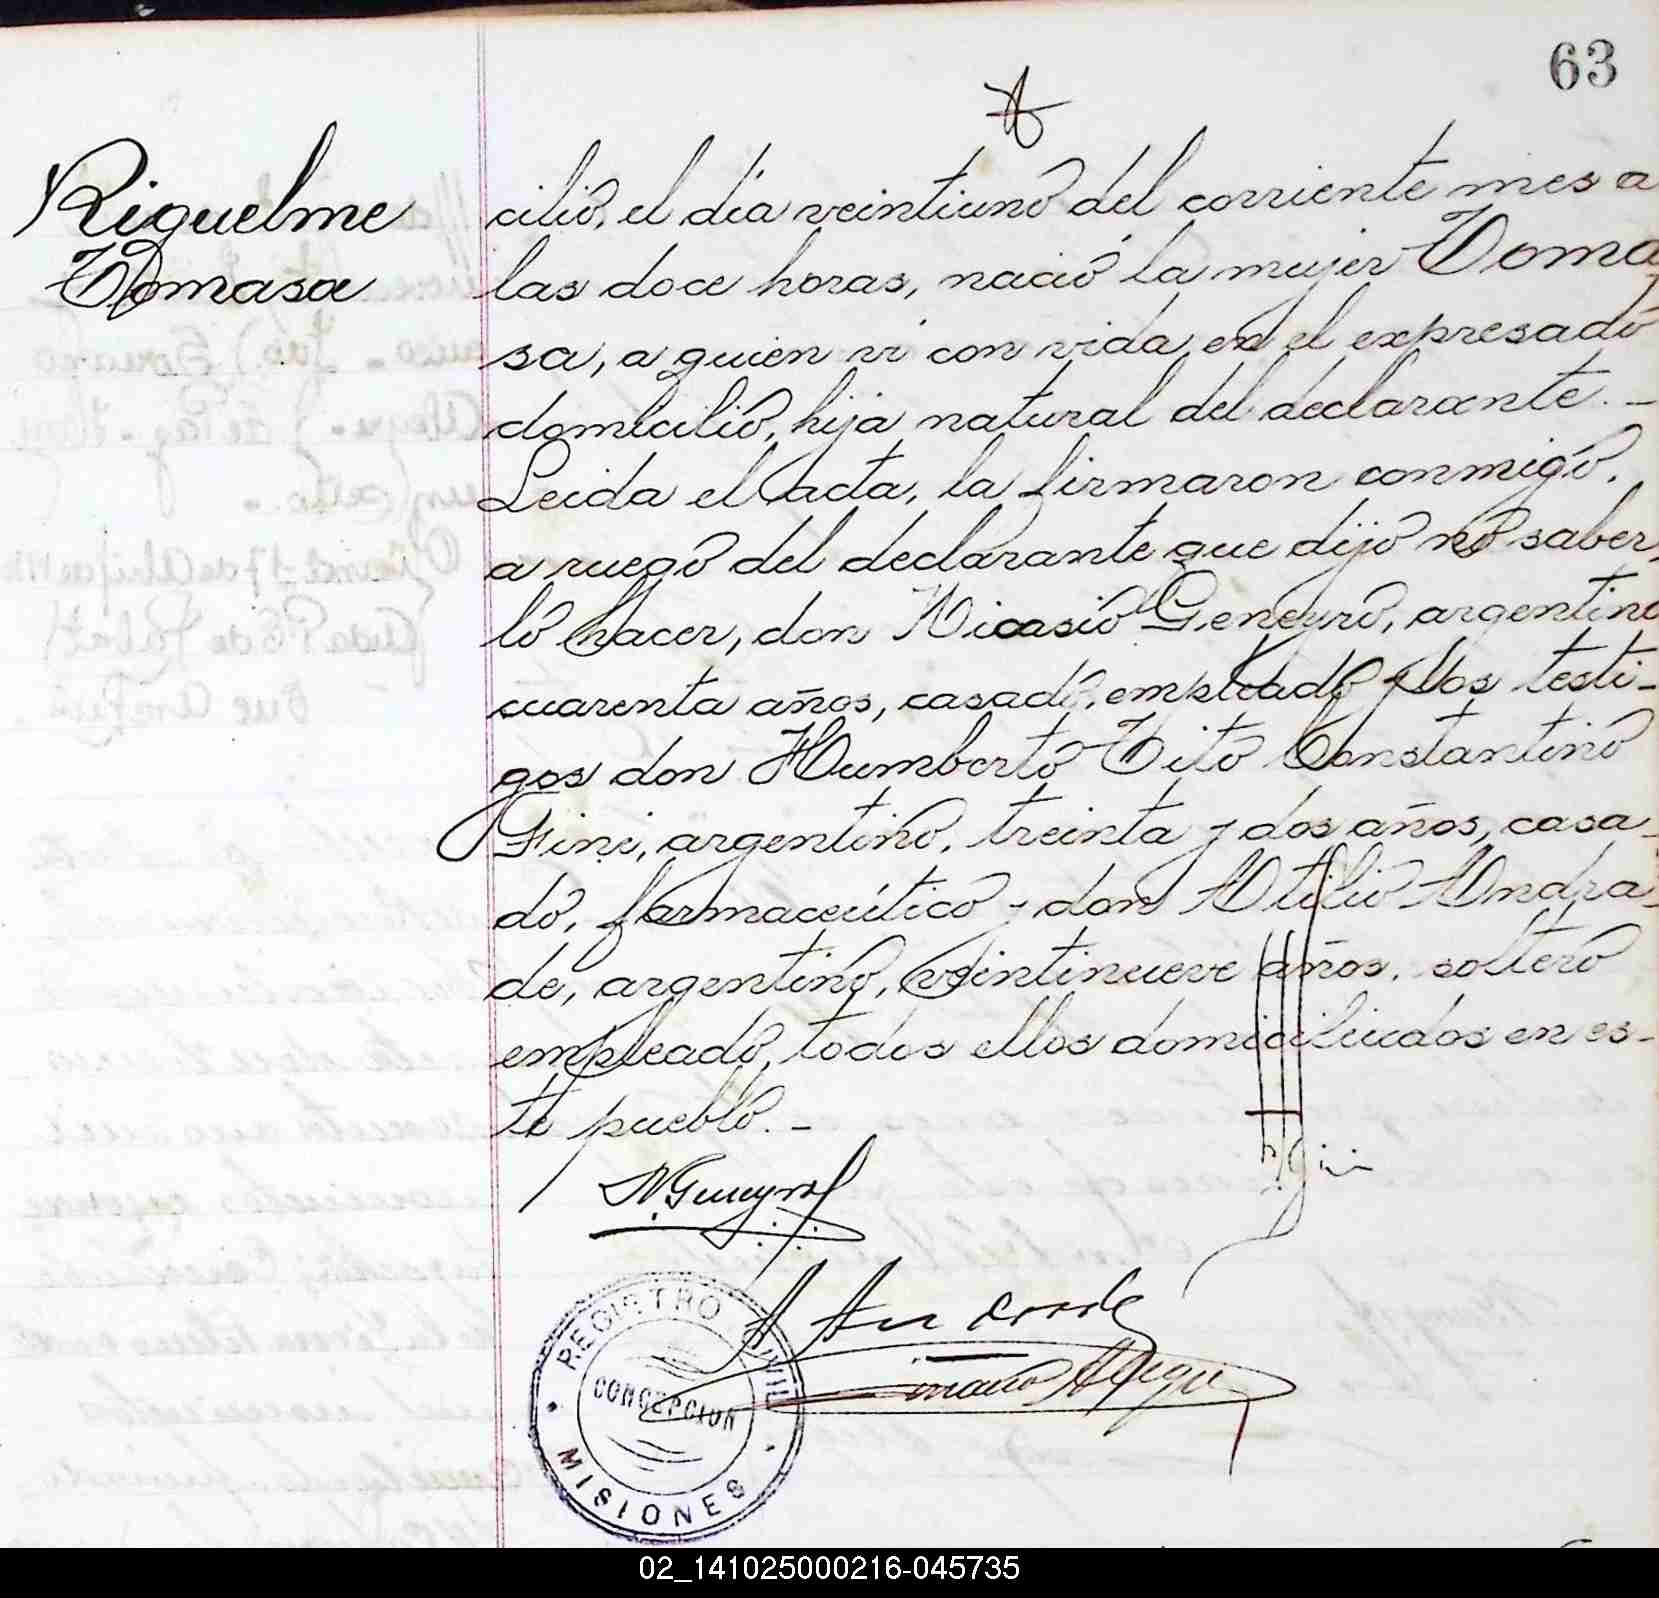 63
Riquelme
Tomasa
cilio, el día veintiuno del corriente mes a
las doce horas, nació la mujer Toma
sa, a quien vi con vida en el expresado
domicilio, hija natural del declarante. -
Leida el acta, la firmaron conmigo,
a ruego del declarante que dijo no saber-
lo hacer, don Nicasio Geneyro, argentino
cuarenta años, casado, empleado y los testi-
gos don Humberto Tito Constantino
Fini, argentino, treinta y dos años, casa-
do, farmaceútico y don Atilio Andra-
de, argentino, veintinueve años, soltero
empleado, todos ellos domiciliados en es-
te pueblo. -
N. Geneyro
A Andrade
REGISTRO CIVIL
CONCEPCION
MISIONES
02_141025000216-045735